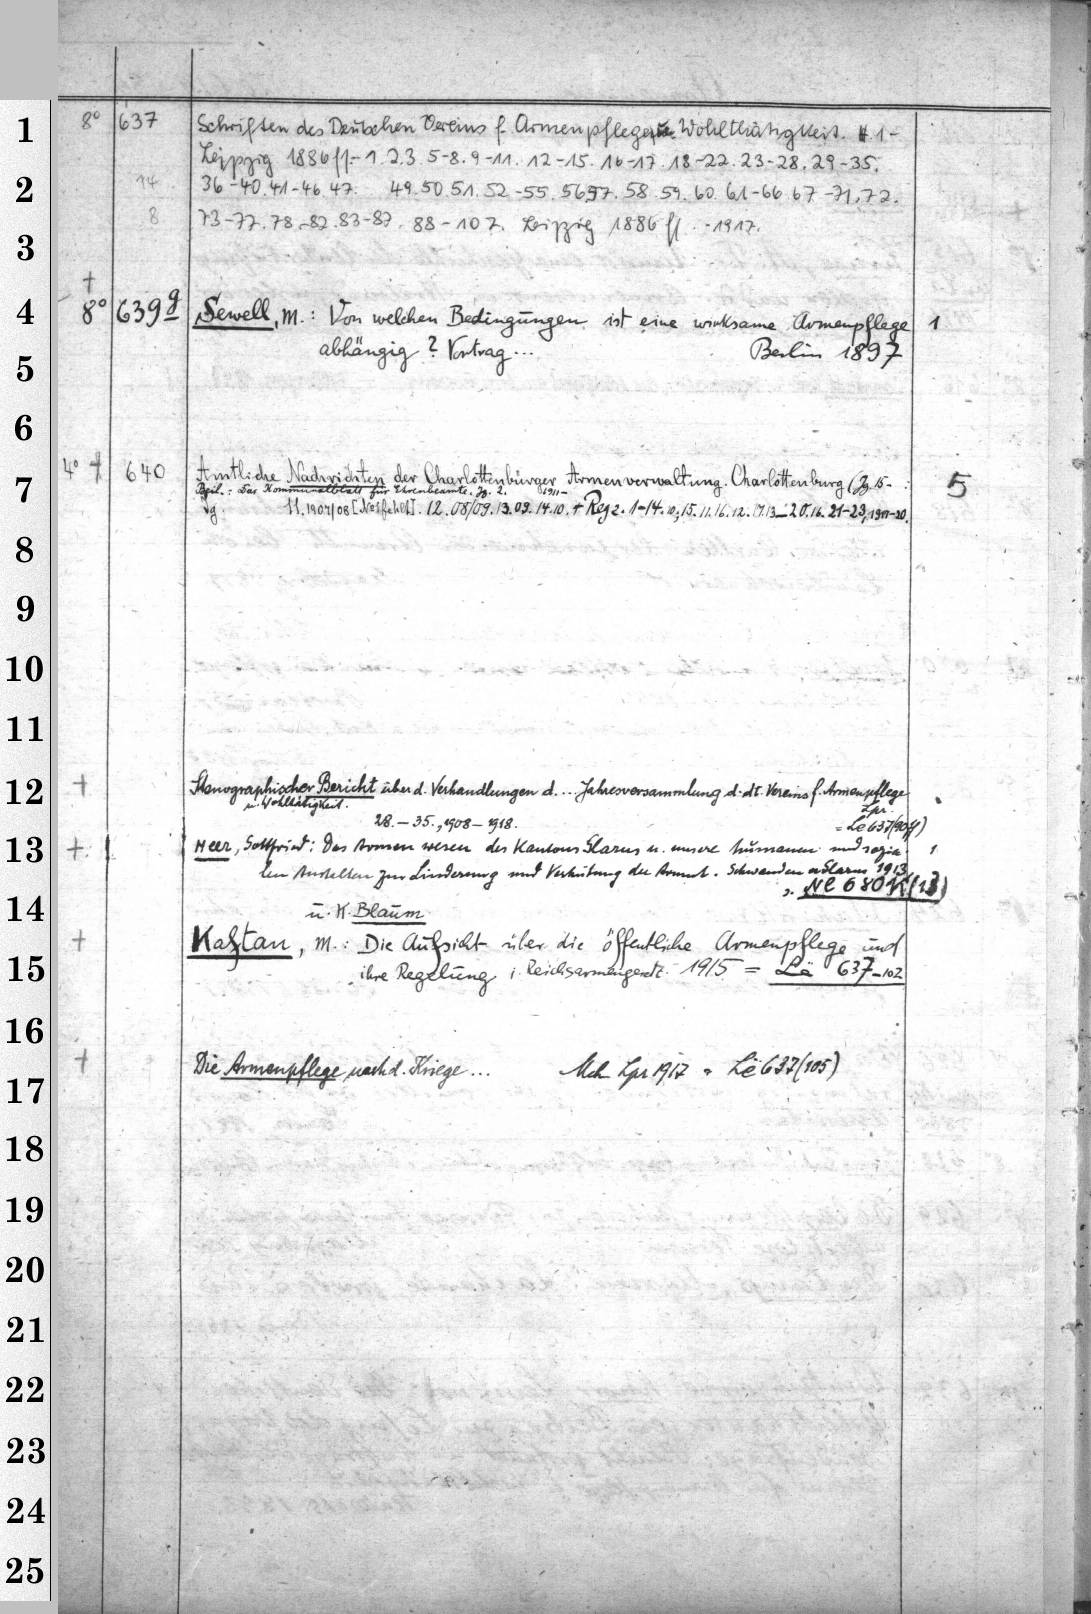 1
8° 637 Schriften des Deutschen Vereins f. Armenpflege u. Wohlthätigkeit. H. 1-
Leipzig 1886 ff.- 1. 2. 3. 5-8. 9-11. 12-15. 16-17. 18-22. 23-28. 29-35.
2
14 36-40. 41-46. 47. 49. 50. 51. 52-55. 56. 57. 58. 59. 60. 61-66. 67-71. 72.
8 73-77. 78-82. 83-87. 88-107. Leipzig 1886 ff. -1917.
3
+
4
8° 639 g Sewell, M.: Von welchen Bedingungen ist eine wirksame Armenpflege 1
abhängig? Vortrag... Berlin 1897
5
6
4° + 640 Amtliche Nachrichten der Charlottenburger Armenverwaltung. Charlottenburg (Jg. 15-
7
5
Beil.: Das Kommunalblatt für Ehrenbeamte. Jg. 2. 1911-
Jg. 11. 1907/08 [Nr 1 fehlt]. 12. 08/09. 13. 09. 14. 10. + Reg 2. 1-14. 10; 15. 11. 16. 12. 17. 13-20. 16. 21-23, 1917-20.
8
9
10
11
+ Stenographischer Bericht über d. Verhandlungen d. ... Jahresversammlung d. dt. Vereins f. Armenpflege
12
u. Wohltätigkeit. Lpz.
28.-35., 1908-1918. = Lë 637(90ff)
13
+ Heer, Gottfried: Das Armenwesen des Kantons Glarus u. unsere humanen und sozia- 1
len Anstalten zur Linderung und Verhütung der Armut. Schwanden Glarus 1913
Ne 680 K (13)
14
u. K. Blaum
+ Kaftan, M.: Die Aufsicht über die öffentliche Armenpflege und
15
ihre Regelung i. Reichsarmengesetz. 1915 = Lë 637-102
16
+ Die Armenpflege nach d. Kriege ... Mch Lpz 1917 = Lë 637(105)
17
18
19
20
21
22
23
24
25